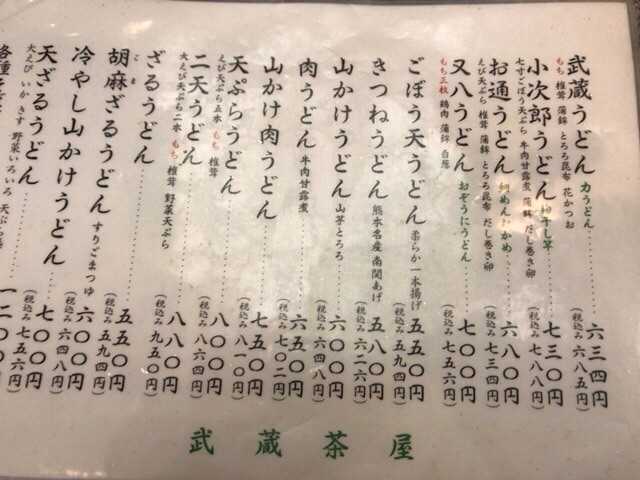 武蔵うどん 力うどん……六三四円
もち 椎茸 蒲鉾 とろろ昆布 花かつお
(税込み 六八五円)
小次郎うどん 物干し竿……七三〇円
七寸ごぼう天ぷら 牛肉甘露煮 蒲鉾 だし巻き卵
(税込み 七八八円)
お通うどん 細めんわかめ……六八〇円
えび天ぷら 椎茸 蒲鉾 とろろ昆布 だし巻き卵
(税込み 七三四円)
又八うどん おぞうにうどん……七〇〇円
もち三枚 鶏肉 蒲鉾 白葱
(税込み 七五六円)
ごぼう天うどん 柔らか一本揚げ 五五〇円
(税込み 五九四円)
きつねうどん 熊本名産 南関あげ 五八〇円
(税込み 六二六円)
山かけうどん 山芋とろろ……六〇〇円
(税込み 六四八円)
肉うどん 牛肉甘露煮……六五〇円
(税込み 七〇二円)
山かけ肉うどん……七五〇円
(税込み 八一〇円)
天ぷらうどん……八〇〇円
えび天ぷら五本 もち 椎茸
(税込み 八六四円)
二天うどん……八八〇円
大えび天ぷら二本 もち 椎茸 野菜天ぷら
(税込み 九五〇円)
ざるうどん……五五〇円
(税込み 五九四円)
胡麻ざるうどん すりごまつゆ 六〇〇円
ごま
(税込み 六四八円)
冷やし山かけうどん……七〇〇円
(税込み 七五六円)
天ざるうどん……一二〇〇円
大えび いか きす 野菜いろいろ 天ぷら
各種
武蔵茶屋